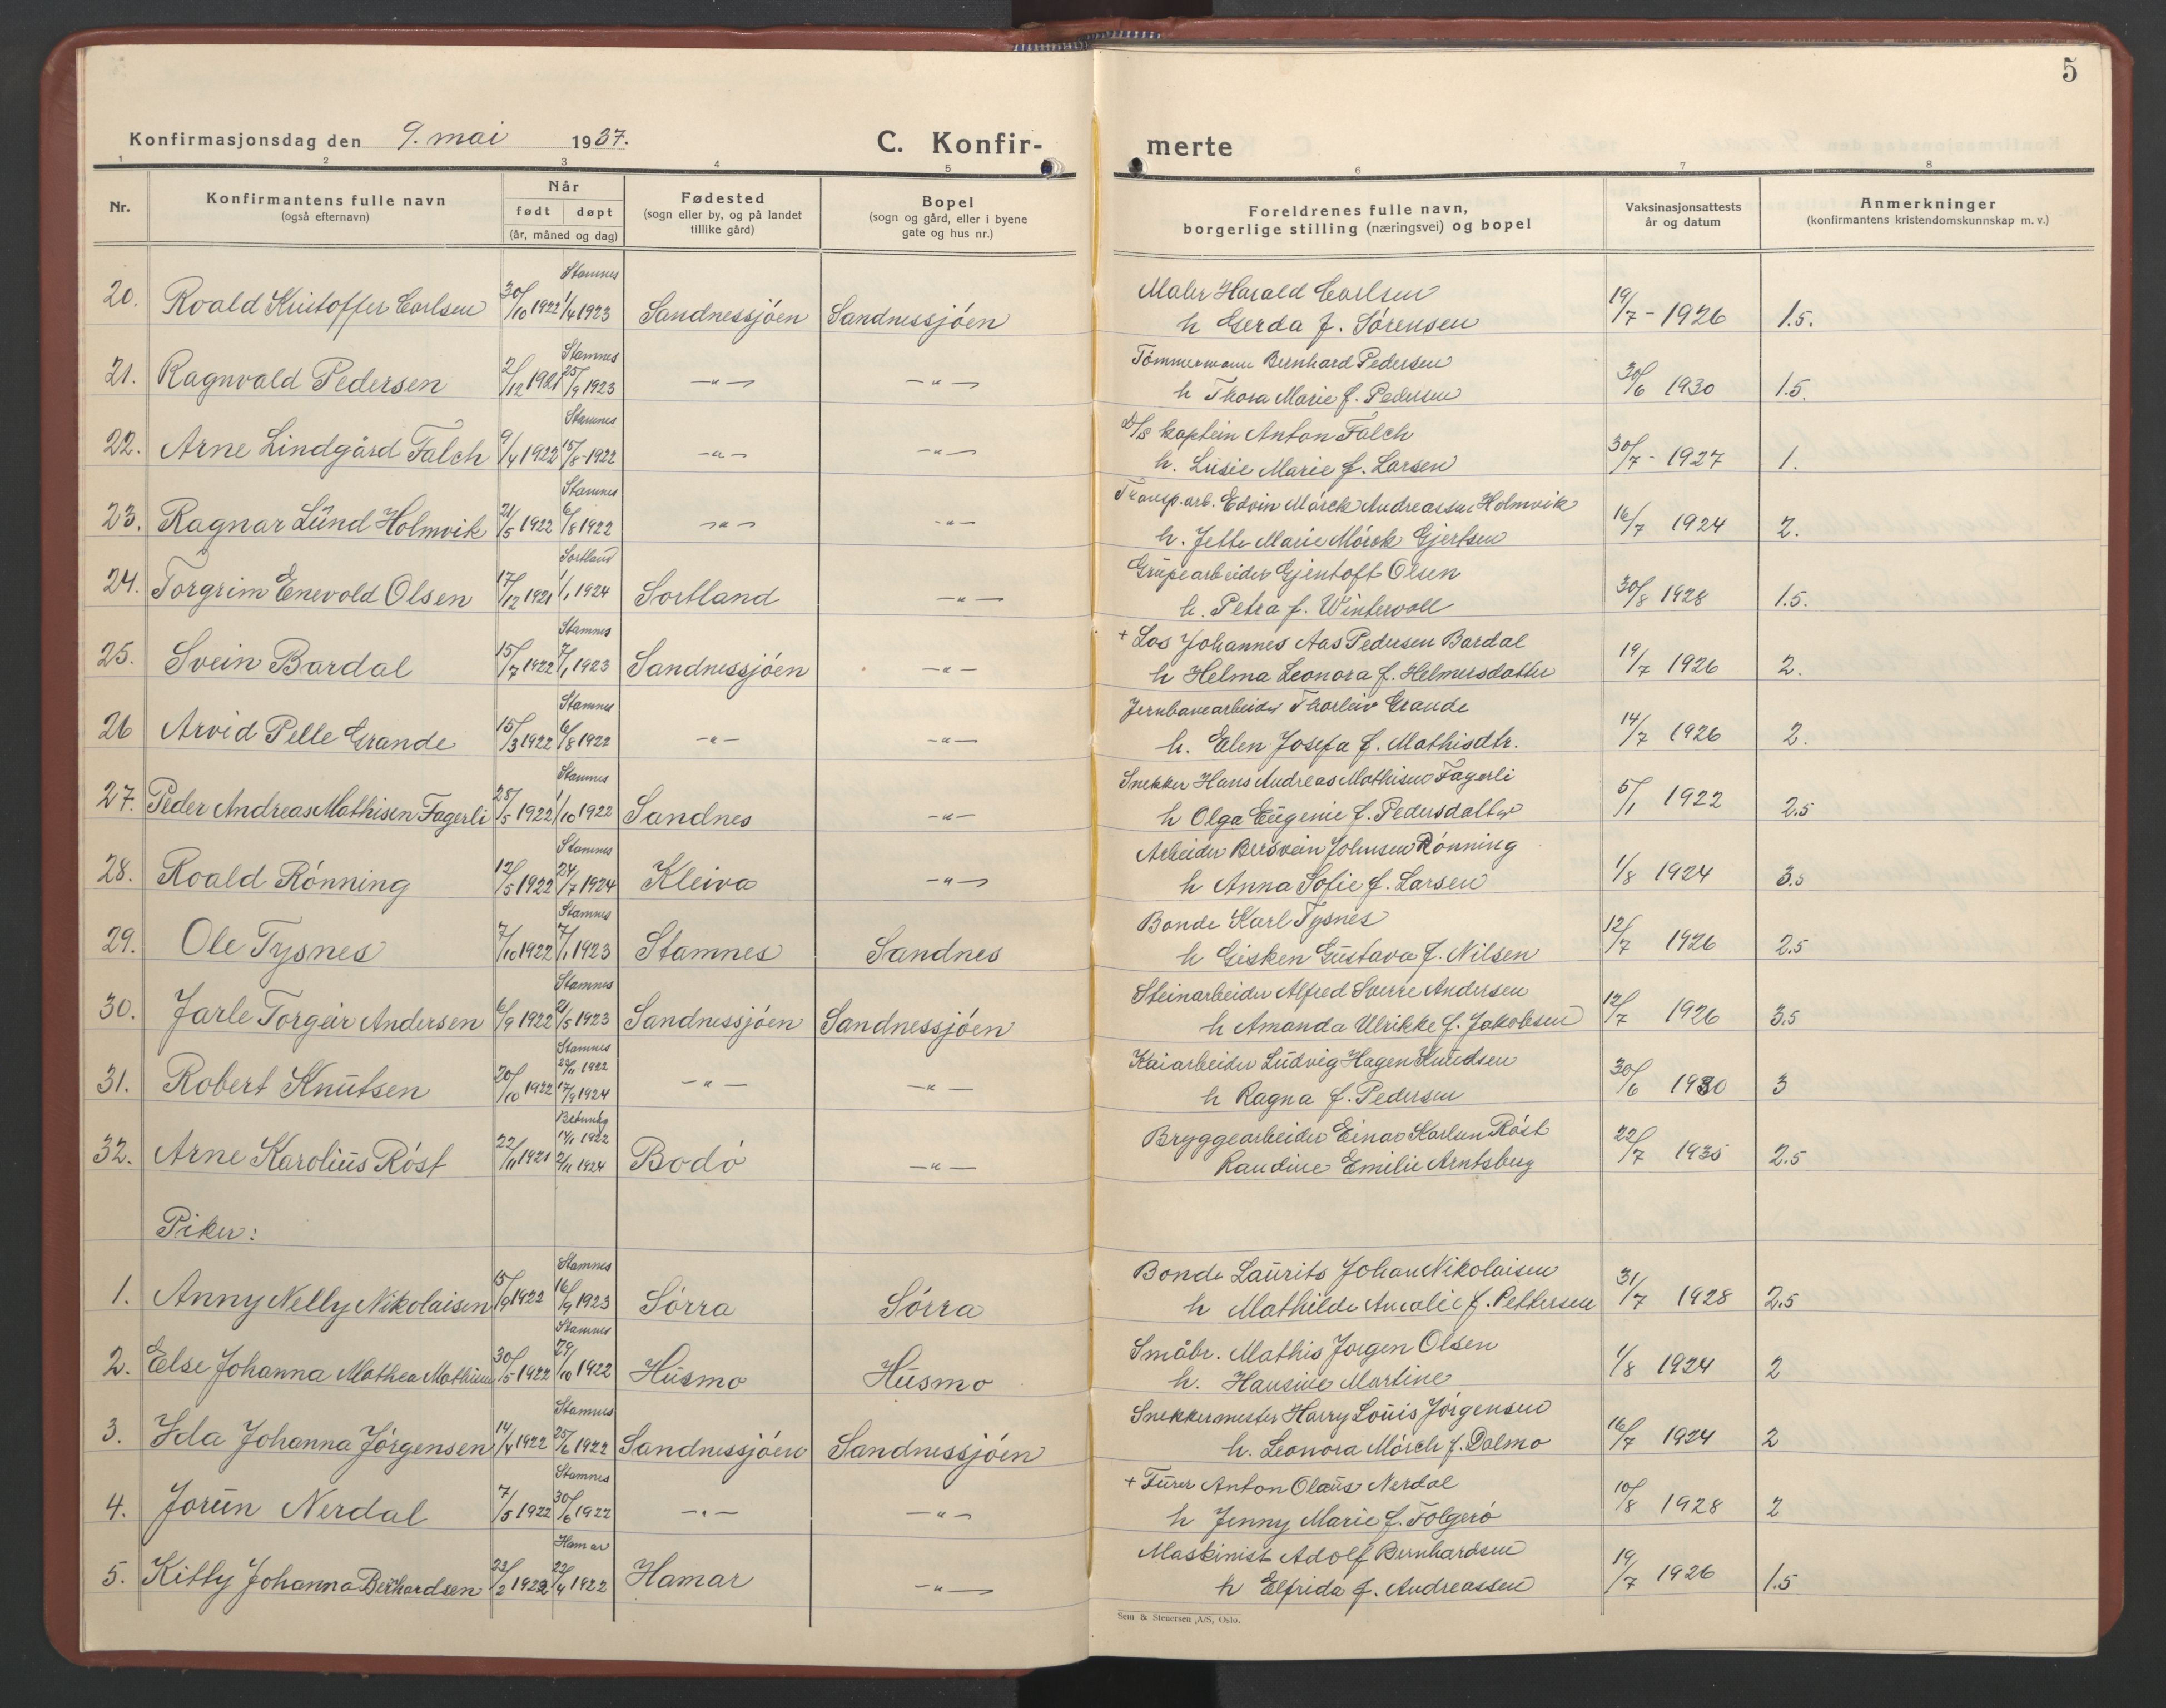 5
Konfirmasjonsdag den 9. mai 1937.
C. Konfir-
merte
1 2 3 4 5 6 7 8
Nr.
Konfirmantens fulle navn
(også efternavn)
Når
født døpt
(år, måned og dag)
Fødested
(sogn eller by, og på landet
tillike gård)
Bopel
(sogn og gård, eller i byene
gate og hus nr.)
Foreldrenes fulle navn,
borgerlige stilling (næringsvei) og bopel
Vaksinasjonsattests
år og datum
Anmerkninger
(konfirmantens kristendomskunnskap m. v.)
Stamnes
Maler Harald Carlsen
20. Roald Kristoffer Carlsen 30/10 1922 1/4 1923 Sandnessjöen Sandnessjöen h Gerda f. Sørensen 19/7 - 1926 1.5.
Stamnes
Tömmermann Bernhard Pedersen
21. Ragnvald Pedersen 2/12 1921 25/9 1923 -"- -"- h Thora Marie f. Pedersen 30/6 1930 1.5.
Stamnes
D/S kaptein Anton Falch
22. Arne Lindgård Falch 9/4 1922 15/8 - 1922 -"- -"- h. Lusie Marie f. Larsen 30/7 - 1927 1.
Stamnes
Transp. arb. Edvin Mörck Andreassen Holmvik
23. Ragnar Lund Holmvik 21/5 1922 6/8 1922 -"- -"- h. Jette Marie Mörck Gjertsen 16/7 1924 2.
Sortland
Grubearbeider Gjentoft Olsen
24. Torgrim Enevold Olsen 17/12 1921 1/1 1924 Sortland -"- h. Petra f. Wintervoll 30/8 1928 1.5.
Stamnes
+ Los Johannes Aas Pedersen Bardal
25. Svein Bardal 15/7 1922 7/1 1923 Sandnessjöen -"- h Helma Leonora f. Helmersdatter 19/7 1926 2.
Stamnes
Jernbanearbeider Thorleiv Grande
26 Arvid Pelle Grande 15/3 1922 6/8 1922 -"- -"- h. Elen Josefa f. Mathisdtr. 14/7 1926 2.
Stamnes
Snekker Hans Andreas Mathisen Fagerli
27. Peder Andreas Mathisen Fagerli 28/5 1922 1/10 1922 Sandnes -"- h Olga Eugenie f. Pedersdatter 5/1 1922 2.5
Stamnes
Arbeider Bersvein Johnsen Rönning
28. Roald Rönning 12/5 1922 24/7 1924 Kleiva -"- h Anna Sofie f. Larsen 1/8 1924 3.5
Stamnes
Bonde Karl Tysnes
29. Ole Tysnes 7/10 1922 7/1 1923 Stamnes Sandnes h Gisken Gustava f. Nilsen 12/7 1926 2.5
Stamnes
Steinarbeider Alfred Sverre Andersen
30. Jarle Torgeir Andersen 6/9 1922 21/5 1923 Sandnessjöen Sandnessjöen h Amanda Ulrikke f. Jakobsen 12/7 1926 3.5
Stamnes
Kaiarbeider Ludvig Hagen Knudsen
31. Robert Knutsen 20/10 1922 1922 17/9 1924 -"- -"- h Ragna f. Pedersen 30/6 1930 3
Bryggearbeider Einar Karlsen Röst
32. Arne Karolius Röst 22/11 1921 1922 2/11 1924 Bodö -"- Randine Emilie Arntsberg 22/7 1935 2.5
Piker:
Stamnes
Bonde Laurits Johan Nikolaisen
1. Anny Nelly Nikolaisen 15/9 1922 16/9 1923 Sörra Sörra h Mathilde Amalie f. Pettersen 31/7 1928 2.5
Stamnes
Småbr. Mathis Jørgen Olsen
2. Else Johanna Mathea Mathisen 30/5 1922 29/10 1922 Husmo Husmo h. Hansine Martine 1/8 1924 2
Stamnes
Snekkermester Harry Louis Jörgensen
3. Ida Johanna Jörgensen 14/4 1922 25/6 1922 Sandnessjöen Sandnessjöen h. Leonora Mörch f. Dalmo 16/7 1924 2
Stamnes
+ Furer Anton Olaus Nerdal
4. Jorun Nerdal 7/5 1922 30/6 1922 -"- -"- h Jenny Marie f. Folgerö 10/8 1928 2
Hamar
Maskinist Adolf Bernhardsen
5. Kitty Johanna Bernhardsen 22/2 1922 22/4 1922 Hamar -"- h Elfrida f. Andreassen 19/7 1926 1.5
Sem & Stenersen A/S, Oslo.